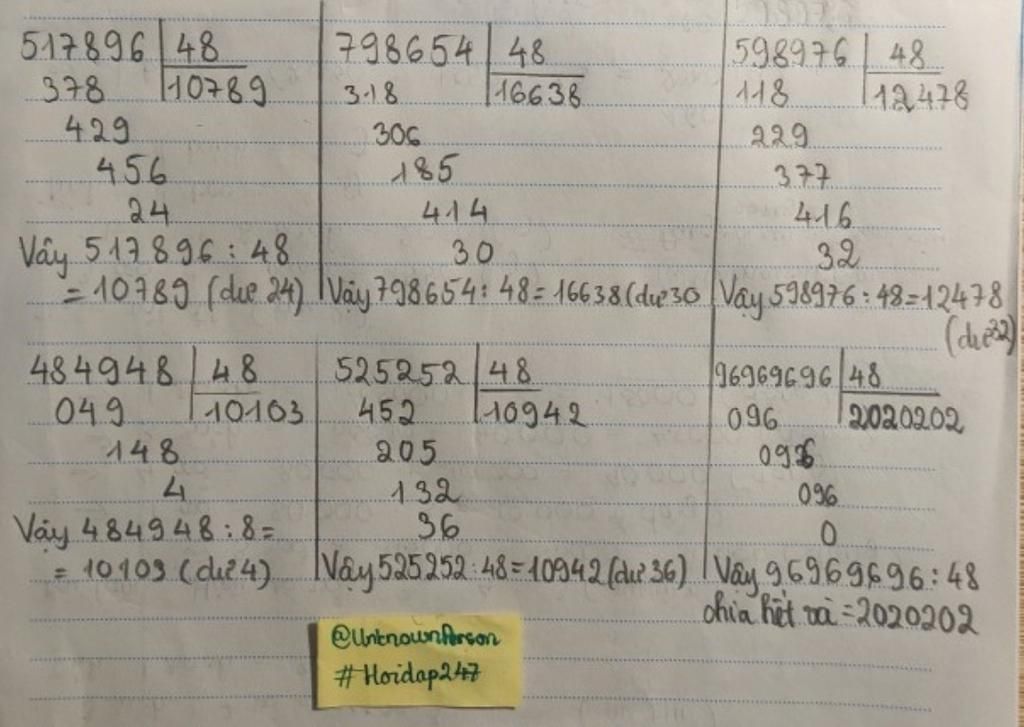 517896 48
378 10789
429
456
24
Vậy 517896 : 48
= 10789 (dư 24)
798654 48
318 16638
306
185
414
30
Vậy 798654 : 48 = 16638 (dư 30
598976 48
118 12478
229
377
416
32
Vậy 598976 : 48 = 12478
(dư 32)
484948 48
049 10103
148
4
Vậy 484948 : 8 =
= 10103 (dư 4)
525252 48
452 10942
205
132
36
Vậy 525252 : 48 = 10942 (dư 36)
96969696 48
096 2020202
096
096
0
Vậy 96969696 : 48
chia hết và = 2020202
@UnknownPerson
#Hoidap247